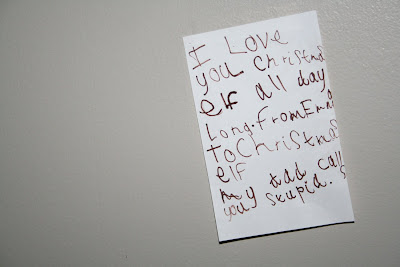 I Love
you christmas
elf all day
Long. From Emma
To Christmas
elf
my dad calls
you stupid.